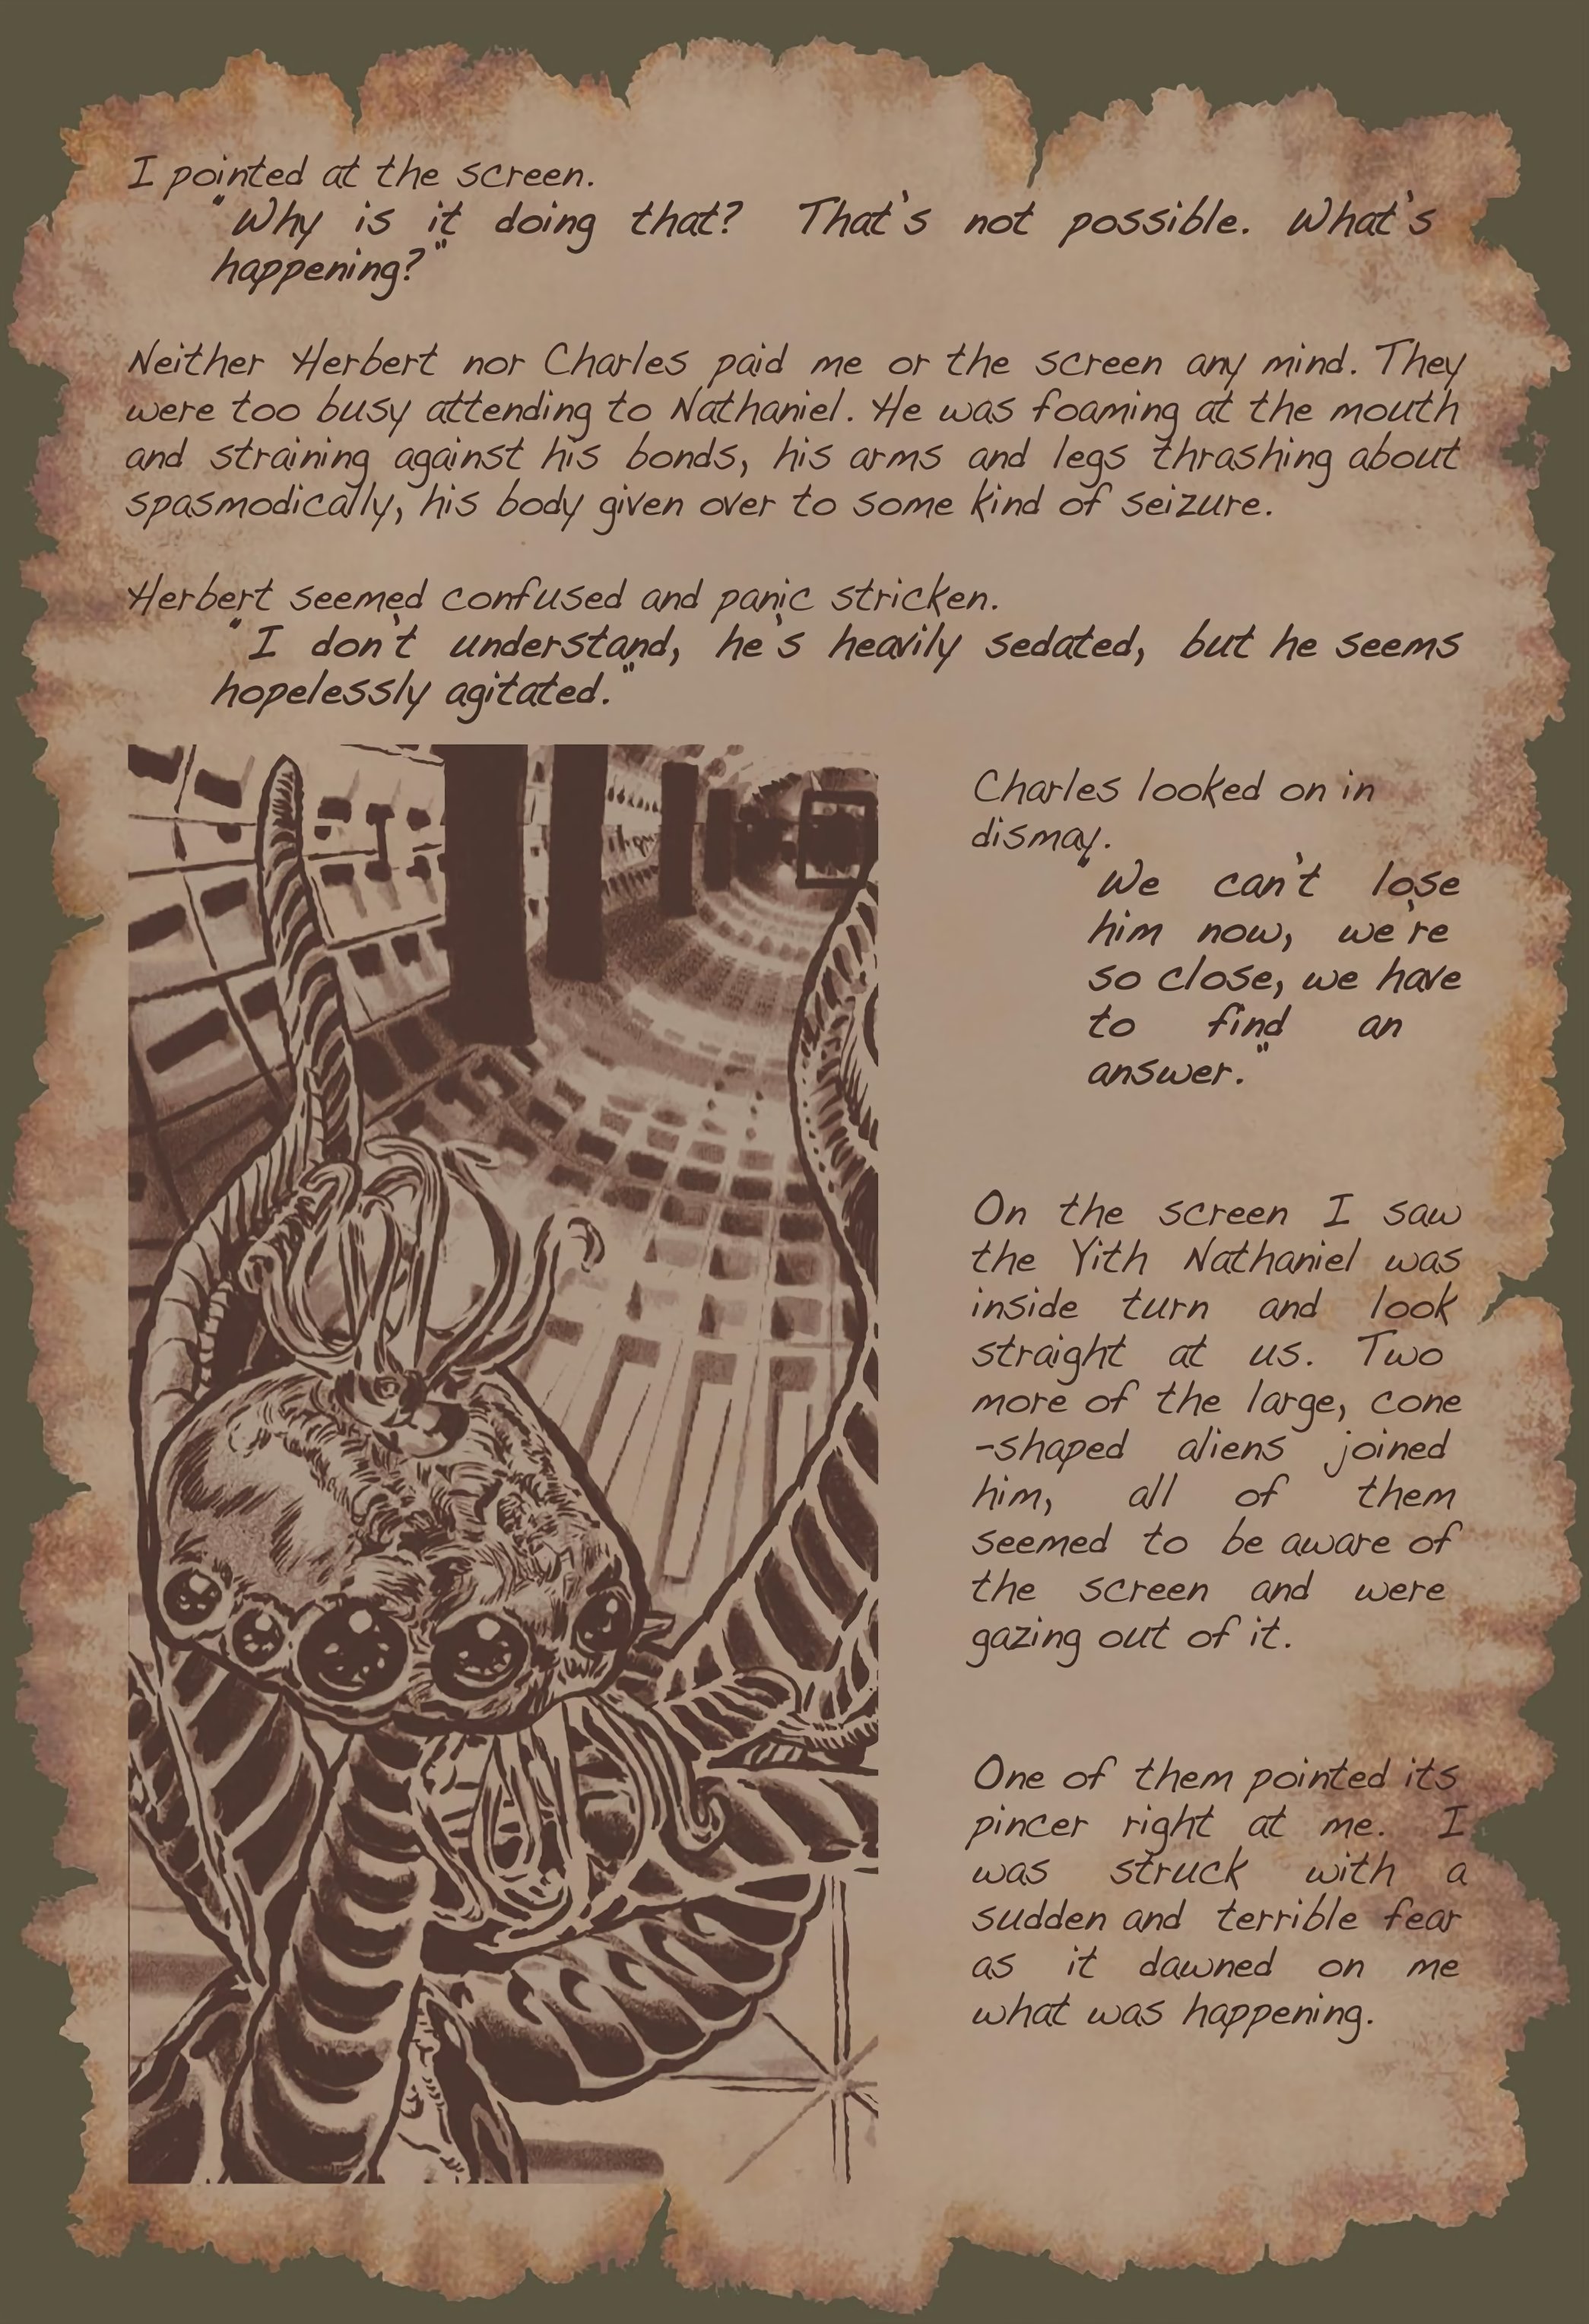 I pointed at the screen.
"Why is it doing that? That's not possible. What's
happening?"
Neither Herbert nor Charles paid me or the screen any mind. They
were too busy attending to Nathaniel. He was foaming at the mouth
and straining against his bonds, his arms and legs thrashing about
spasmodically, his body given over to some kind of seizure.
Herbert seemed confused and panic stricken.
"I don't understand, he's heavily sedated, but he seems
hopelessly agitated."
Charles looked on in
dismay.
"We can't lose
him now, we're
so close, we have
to find an
answer."
On the screen I saw
the Yith Nathaniel was
inside turn and look
straight at us. Two
more of the large, cone
-shaped aliens joined
him, all of them
seemed to be aware of
the screen and were
gazing out of it.
One of them pointed its
pincer right at me. I
was struck with a
sudden and terrible fear
as it dawned on me
what was happening.